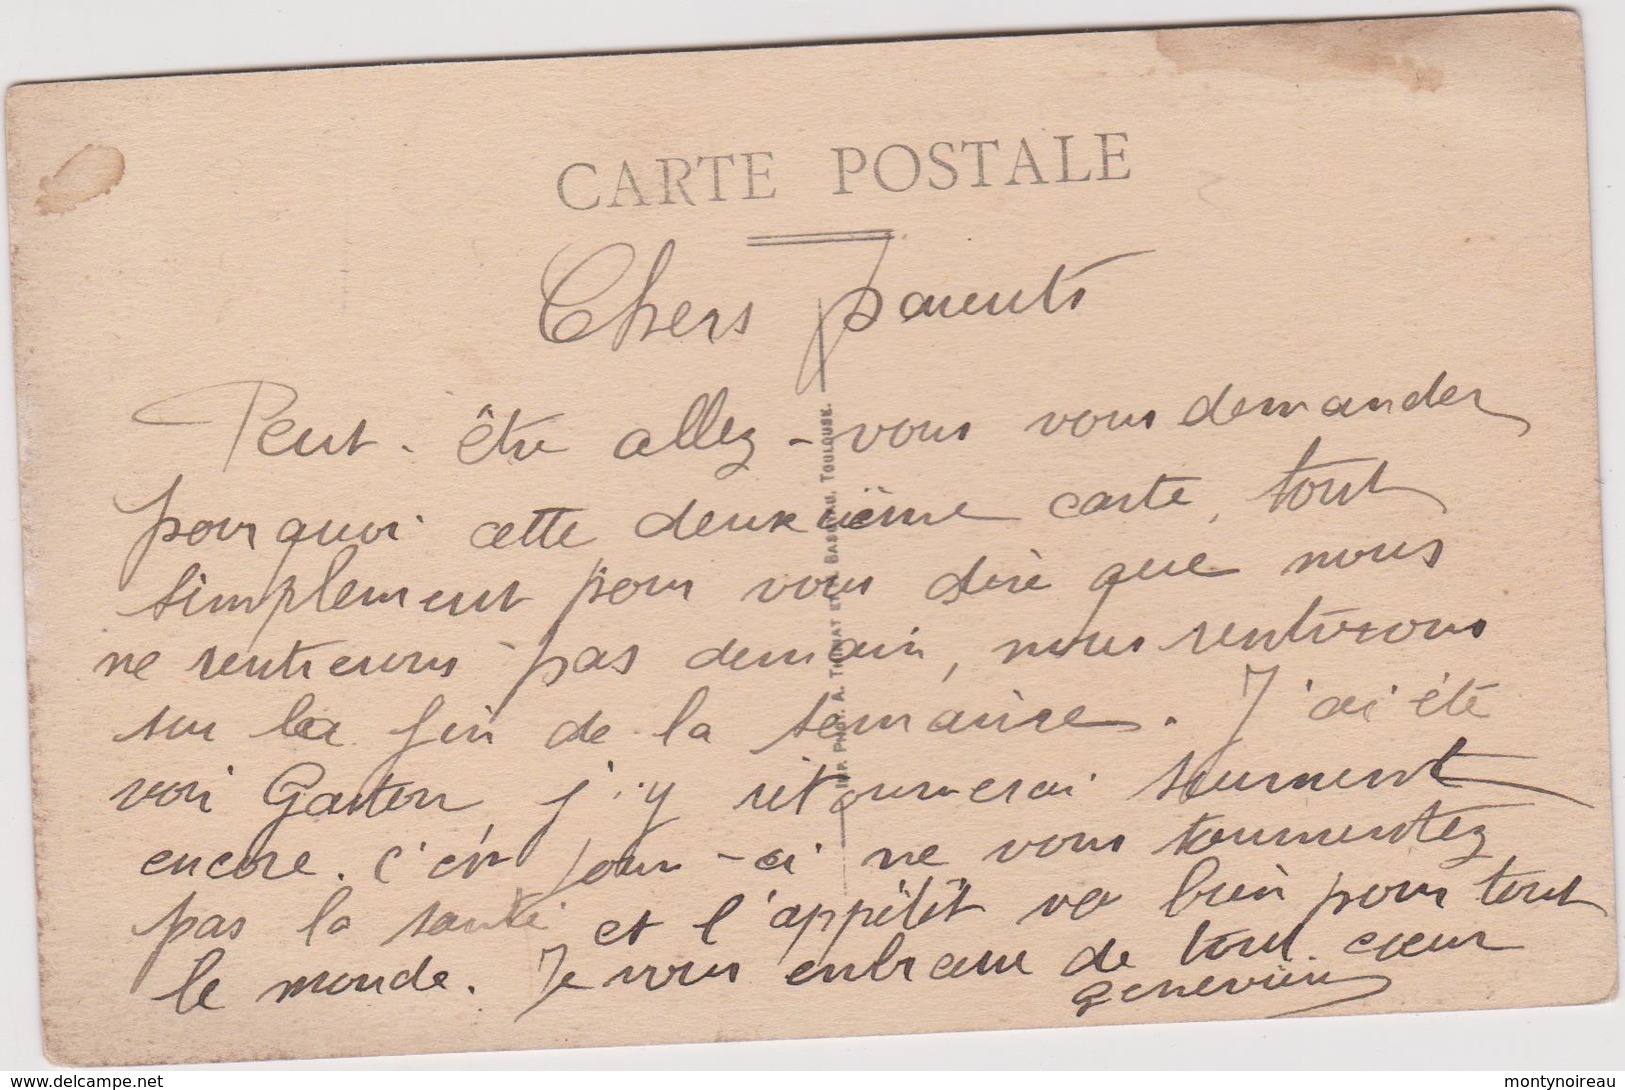 CARTE POSTALE
Chers parents
Peut-être allez-vous vous demander
pourquoi cette deuxième carte, tout
simplement pour vous dire que nous
ne rentrerons pas demain, nous rentrerons
sur la fin de la semaine. J'ai été
voir Gaston, j'y retournerai surement
encore. ces jours-ci ne vous tourmentez
pas la santé et l'appétit va bien pour tout
le monde. Je vous embrasse de tout cœur
Geneviève
IMP. PHOT. A. THIRIAT ET BASUYAU, TOULOUSE.
www.delcampe.net
montynoireau